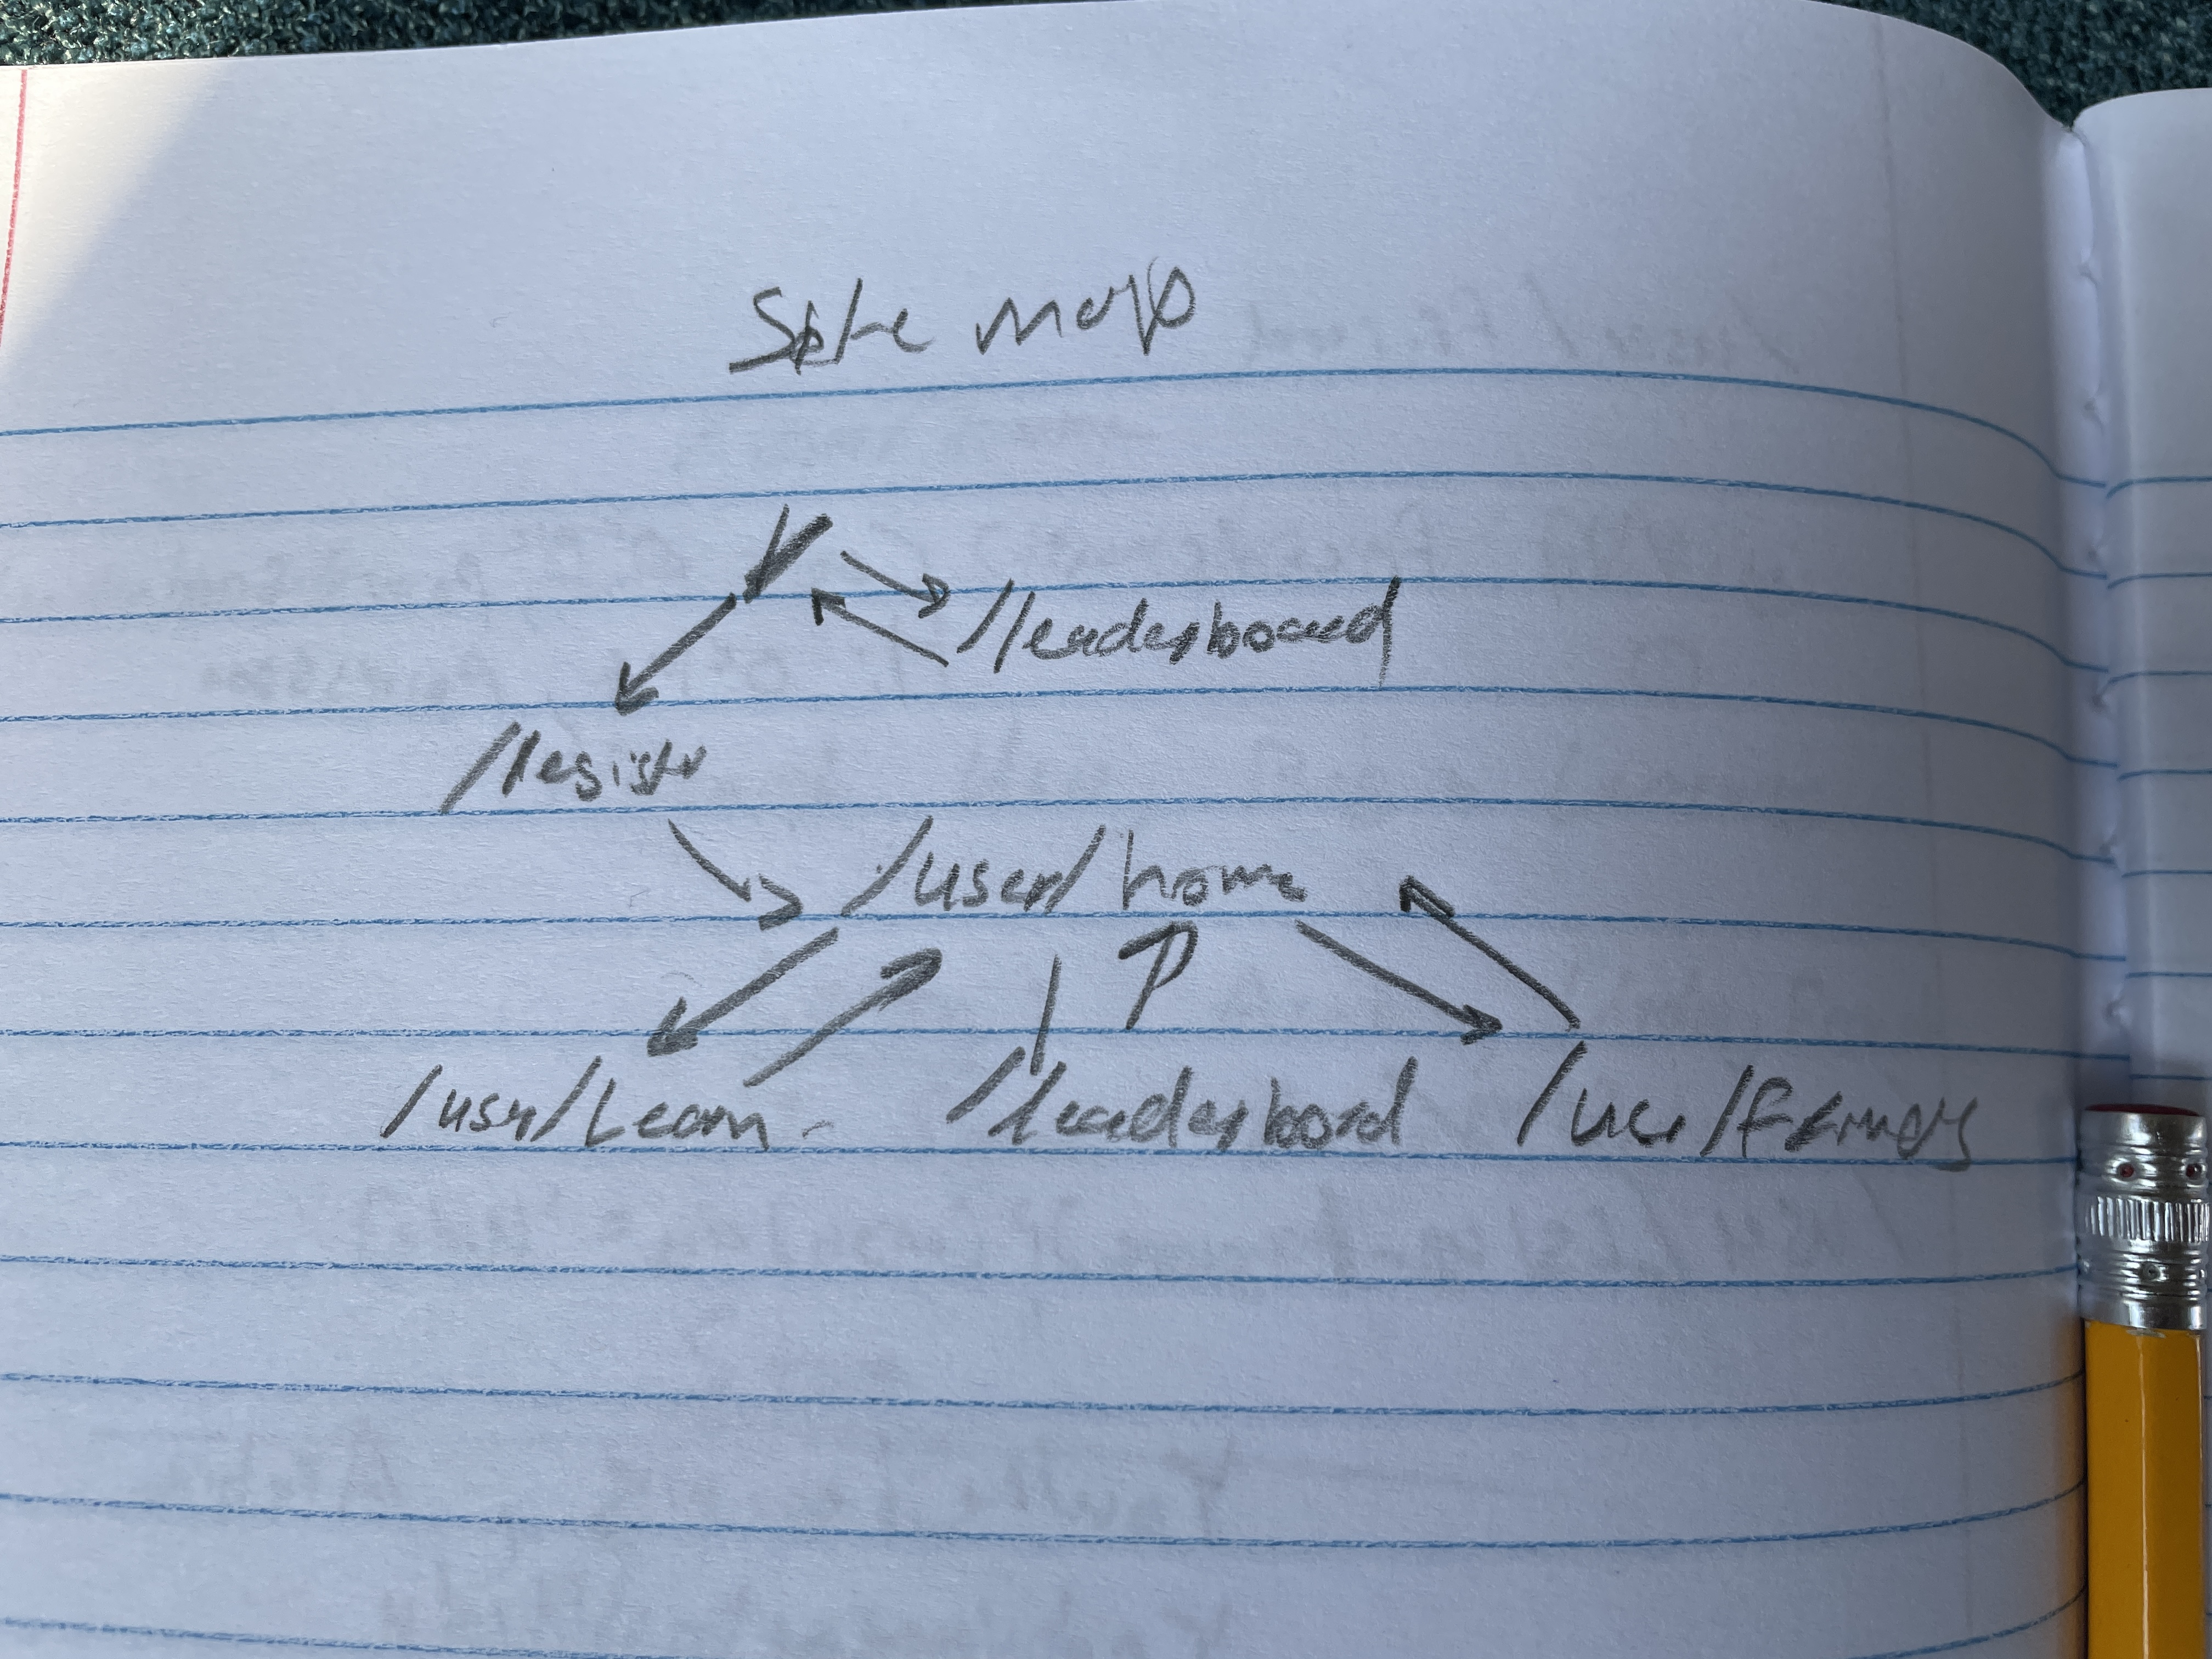 Site map
/
/leaderboard
/register
/user/home
/user/Learn
/leaderbord
/user/friends